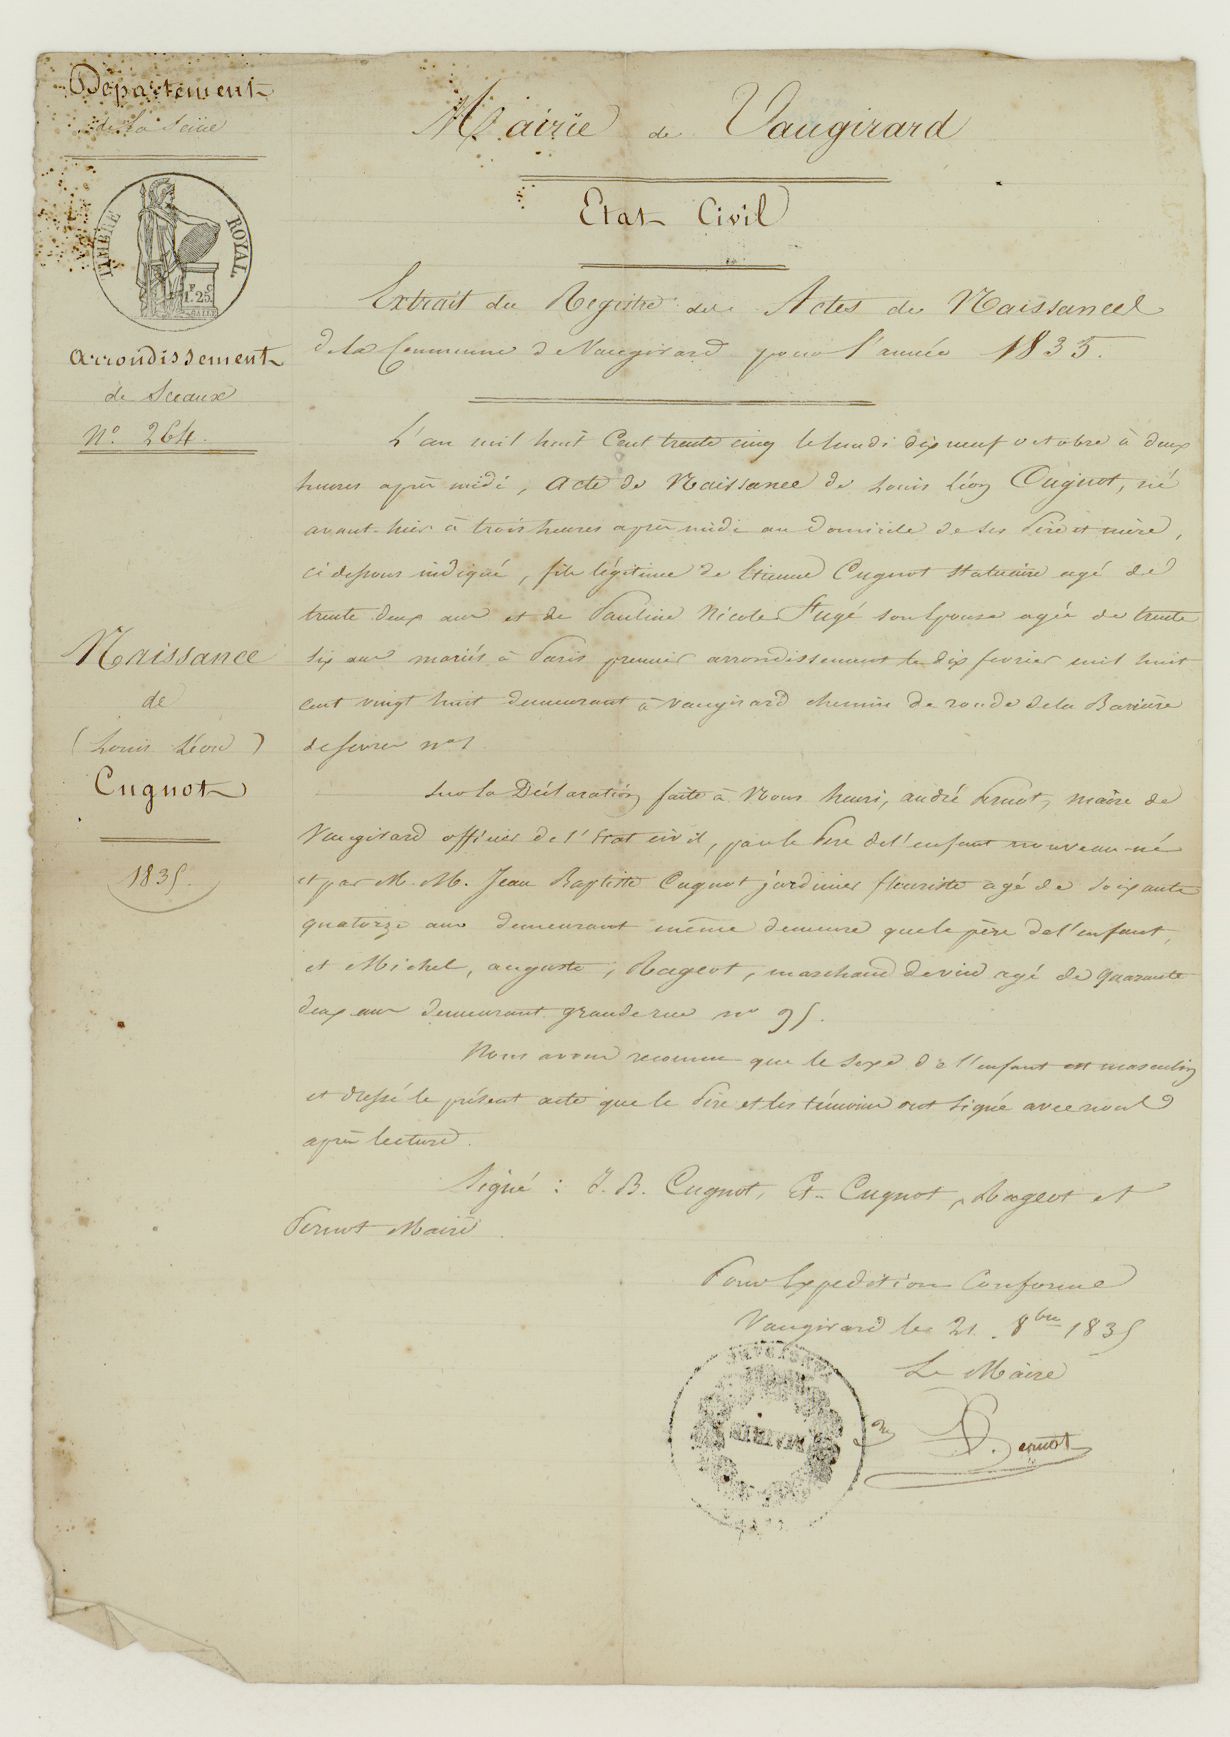 Département
de la Seine
TIMBRE ROYAL
1.25
Arrondissement
de Sceaux
N° 264.
Naissance
de
(Louis Léon)
Cugnot
1835.
Mairie de Vaugirard
Etat Civil
Extrait du Registre des Actes de Naissances
de la Commune de Vaugirard pour l'année 1835.
L'an mil huit Cent trente cinq le lundi dix neuf octobre à deux
heures après midi, Acte de Naissance de Louis Léon Cugnot, né
avant-hier à trois heures après midi au domicile de ses Père et mère,
ci dessous indiqué, fils légitime de Etienne Cugnot statuaire agé de
trente deux ans et de Pauline Nicole Fugé son Epouse agée de trente
six ans mariés à Paris premier arrondissement le dix fevrier mil huit
cent vingt huit demeurant à Vaugirard chemin de ronde de la Barrière
de Sevres n° 1
Sur la Déclaration faite à Nous henri, andré Pernot, maire de
Vaugirard officier de l'Etat civil, par le Père de l'enfant nouveau-né
et par M.M. Jean Baptiste Cugnot jardinier fleuriste agé de soixante
quatorze ans demeurant même demeure que le père de l'enfant,
et Michel, auguste, Rageot, marchand de vin agé de quarante
deux ans demeurant grande rue n° 95.
Nous avons reconnu que le sexe de l'enfant est masculin
et dressé le présent acte que le Père et les témoins ont signé avec nous
après lecture.
Signé : J. B. Cugnot, Et. Cugnot, Rageot et
Pernot Maire
Pour Expedition Conforme
Vaugirard le 21 8bre 1835
Le Maire
Pernot